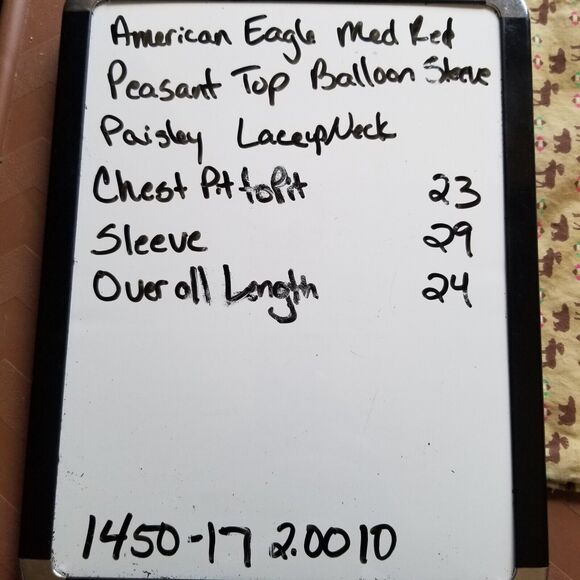 American Eagle Med Red
Peasant Top Balloon Sleeve
Paisley LaceupNeck
Chest Pit to Pit 23
Sleeve 29
Over all Length 24
1450-17 2.0010